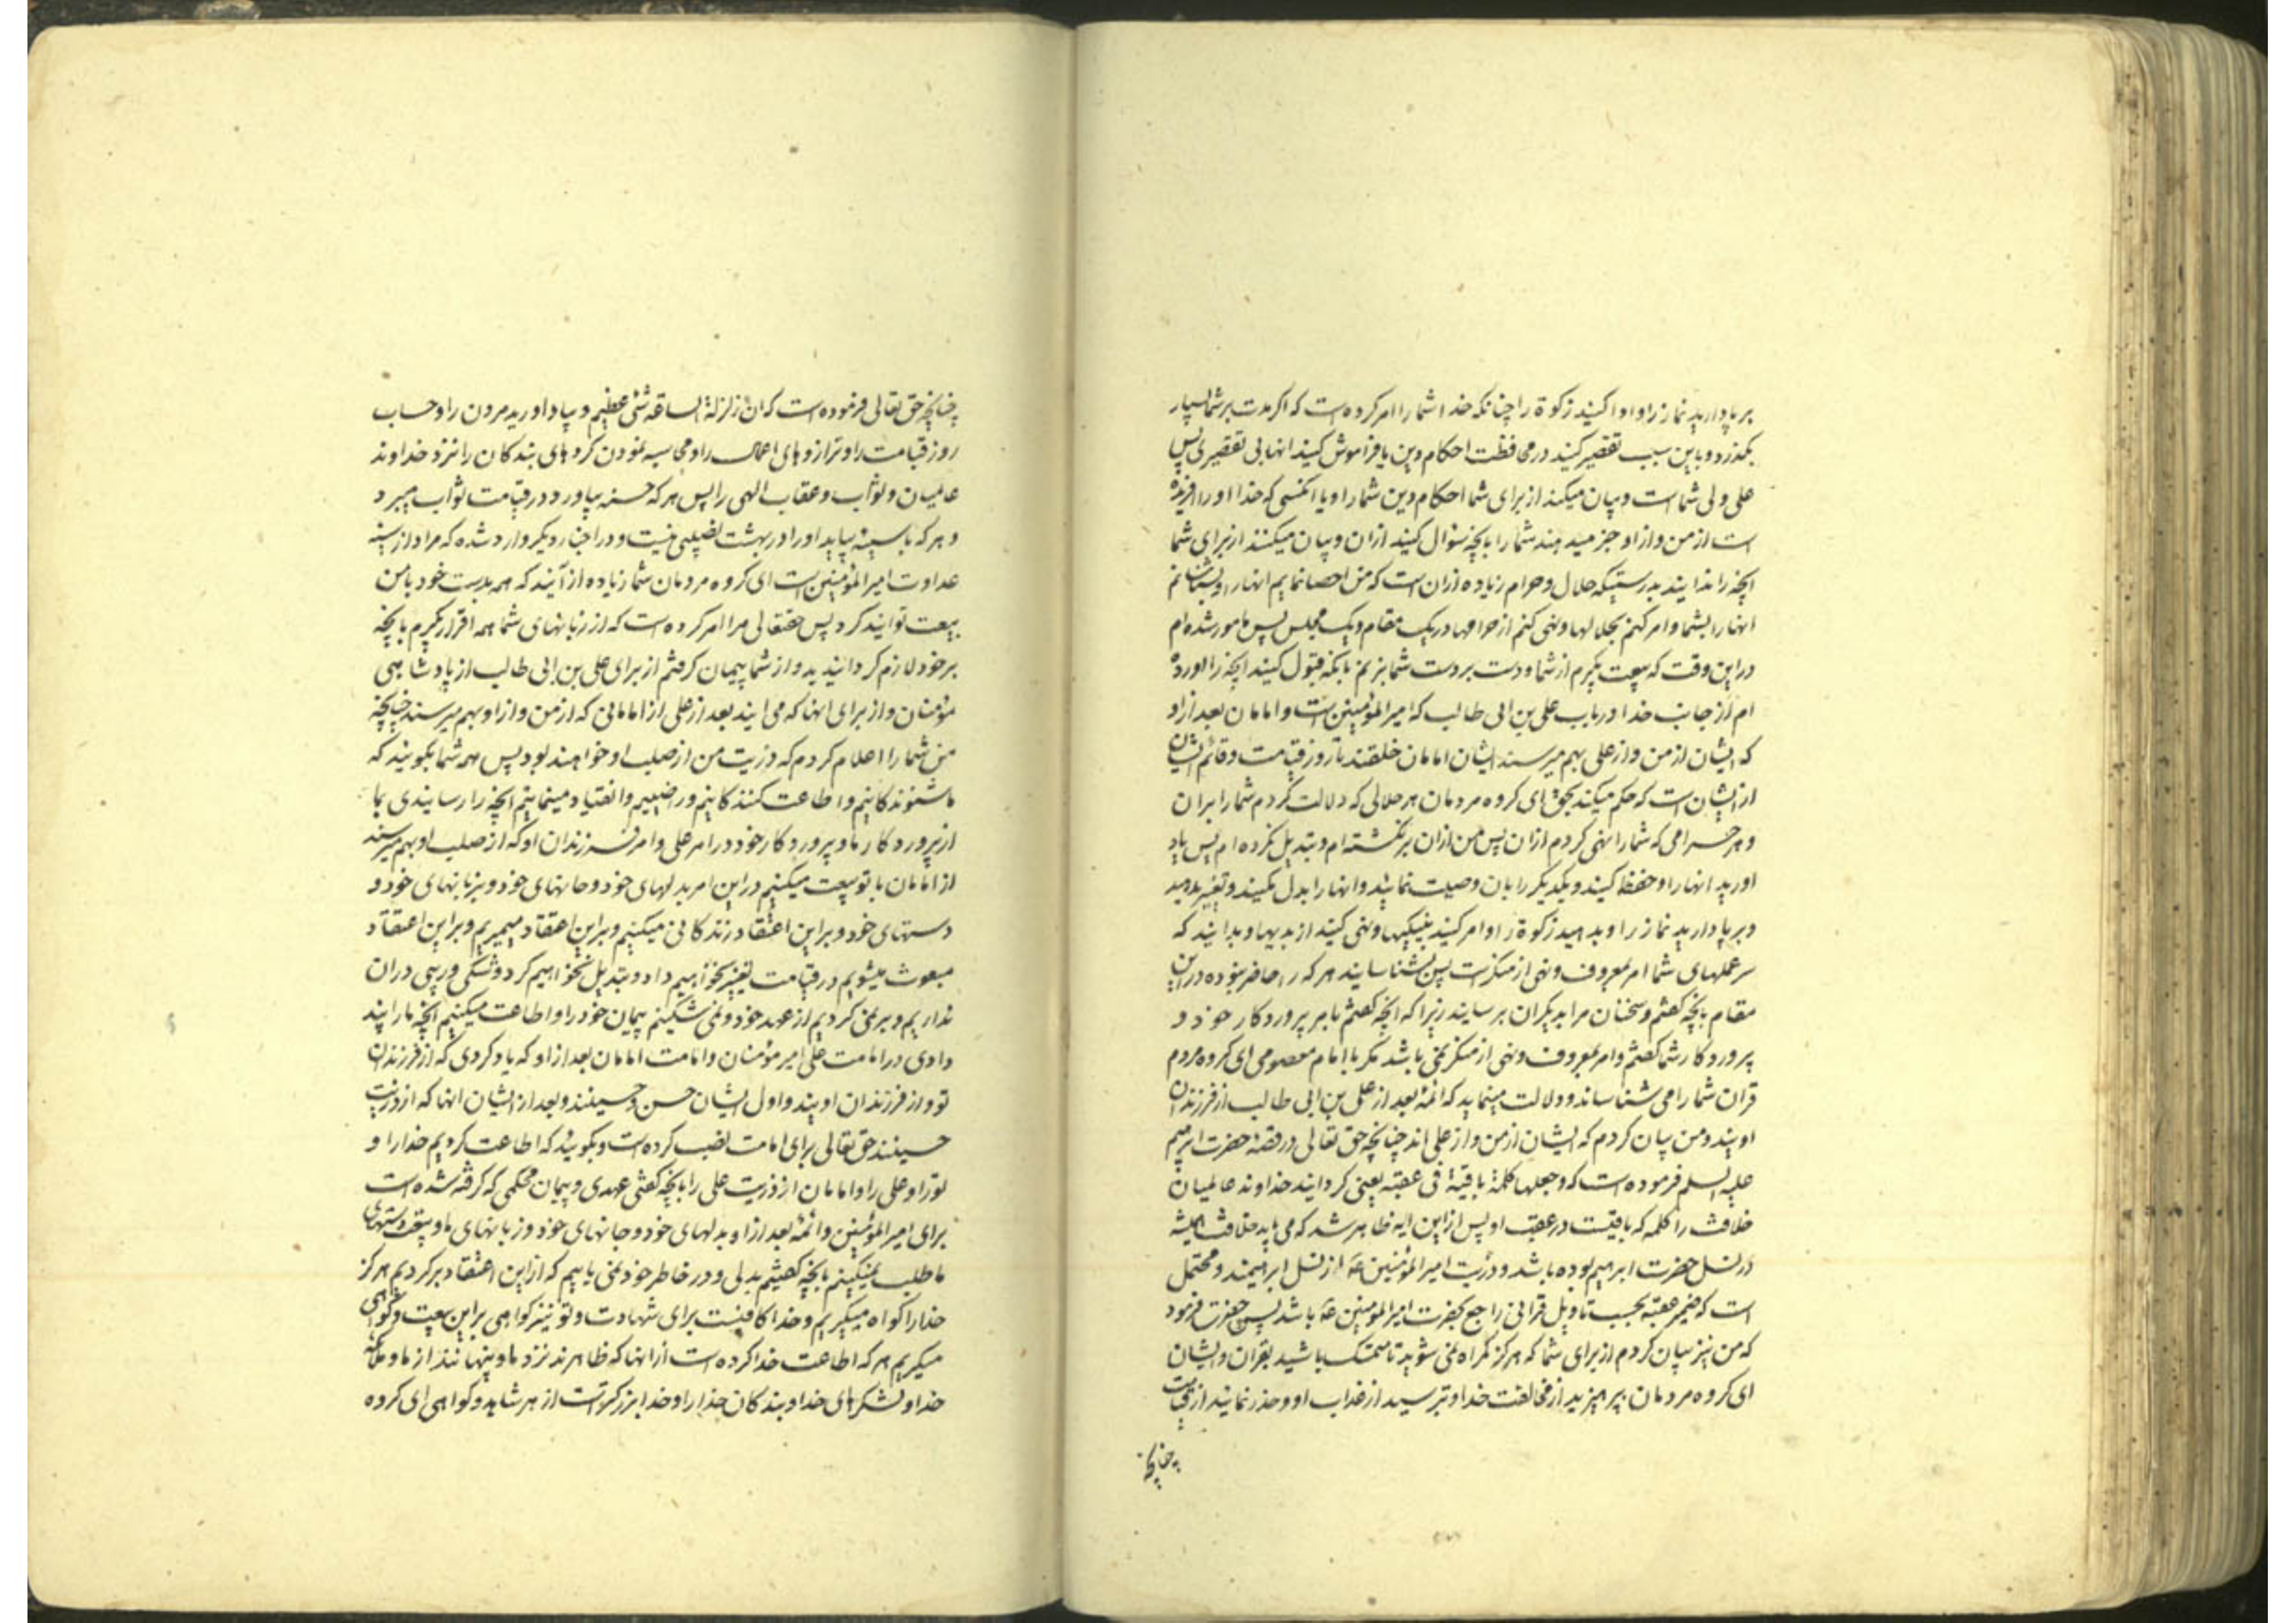 بر پا دارید نماز را و ادا کنید زکوة را چنانکه خدا شما را امر کرده است که اگر مدت بر شما بسیار
بگذرد و باین سبب تقصیر کنید در محافظت احکام دین یا فراموش کنید انها بی تقصیری پس
علی ولی شماست و بیان میکند از برای شما احکام دین شما را و یا انکسی که خدا او را افریده
است از من و از او خبر میدهند شما را بانچه سؤال کنید ازان و بیان میکنند از برای شما
انچه را ندانید بدرستیکه حلال و حرام زیاده ازان است که من احصا نمایم انها را و بشناسانم
انها را بشما و امر کنم بحلالها و نهی کنم از حرامها در یک مقام و یک مجلس پس مامور شده ام
در این وقت که بیعت بگیرم از شما و دست بر دست شما بزنم بانکه قبول کنید انچه را اورده
ام از جانب خدا در باب علی بن ابی طالب که امیر المؤمنین است و امامان بعد از او
که ایشان از من و از علی بهم میرسند ایشان امامان خلقند تا روز قیامت و قائم ایشان
از ایشان است که حکم میکند بحق ای گروه مردمان هر حلالی که دلالت کردم شما را بران
و هر حرامی که شما را نهی کردم ازان پس من ازان برنگشته ام و تبدیل نکرده ام پس یاد
اورید انها را و حفظ کنید و یکدیگر را بان وصیت نمائید و انها را بدل مکنید و تغییر مدهید
و بر پا دارید نماز را و بدهید زکوة را و امر کنید بنیکیها و نهی کنید از بدیها و بدانید که
سر عملهای شما امر بمعروف و نهی از منکرست پس بشناسانید هر که را حاضر نبوده در این
مقام بانچه گفتم و سخنان مرا بدیگران برسانید زیرا که انچه گفتم بامر پروردکار خود و
پروردکار شما گفتم و امر بمعروف و نهی از منکر نمی باشد مگر با امام معصومی ای گروه مردم
قران شما را می شناساند و دلالت مینماید که ائمه بعد از علی بن ابی طالب از فرزندان
اویند و من بیان کردم که ایشان از من و از علی اند چنانچه حق تعالی در قصهٔ حضرت ابرهیم
علیه السلم فرموده است که و جعلها کلمة باقیة فی عقبه یعنی گردانید خداوند عالمیان
خلافت را کلمه که باقیست در عقب او پس از این ایه ظاهر شد که می باید خلافت همیشه
در نسل حضرت ابرهیم بوده باشد و ذریت امیر المؤمنین ع از نسل ابرهیمند و محتمل
است که ضمیر عقبه بحسب تاویل قرانی راجع بحضرت امیر المؤمنین ع باشد پس حضرت فرمود
که من نیز بیان کردم از برای شما که هرگز گمراه نمی شوید تا متمسک باشید بقران و ایشان
ای گروه مردمان بپرهیزید از مخالفت خدا و بترسید از عذاب او و حذر نمایند از قیامت
چنانچه
چنانچه حق تعالی فرموده است که ان زلزلة الساعة شئ عظیم و بیاد اورید مردن را و حساب
روز قیامت را و ترازوهای اعمال را و محاسبه نمودن کردهای بندکان را نزد خداوند
عالمیان و ثواب و عقاب الهی را پس هر که حسنه بیاورد در قیامت ثواب میبرد
و هر که با سیئه بیاید او را در بهشت نصیبی نیست و در اخبار دیگر وارد شده که مراد از سیئه
عداوت امیر المؤمنین است ای گروه مردمان شما زیاده از آنید که همه بدست خود با من
بیعت توانید کرد پس حقتعالی مرا امر کرده است که از زبانهای شما همه اقرار بگیرم بانچه
بر خود لازم گردانیدید و از شما پیمان گرفتم از برای علی بن ابی طالب از پادشاهی
مؤمنان و از برای انها که می ایند بعد از علی از امامانی که از من و از او بهم میرسند چنانچه
من شما را اعلام کردم که ذریت من از صلب او خواهند بود پس همه شما بگویند که
ما شنوندکانیم و اطاعت کنندکانیم و راضییم و انقیاد مینمائیم انچه را رسانیدی بما
از پروردکار ما و پروردکار خود در امر علی و امر فرزندان او که از صلب او بهم میرسند
از امامان با تو بیعت میکنیم در این امر بدلهای خود و جانهای خود و بزبانهای خود و
دستهای خود و بر این اعتقاد زندکانی میکنیم و بر این اعتقاد میمیریم و بر این اعتقاد
مبعوث میشویم در قیامت تغییر نخواهیم داد و تبدیل نخواهیم کرد و شکی و ریبی دران
نداریم و بر نمی کردیم از عهد خود و نمی شکنیم پیمان خود را و اطاعت میکنیم انچه ما را پند
دادی در امامت علی امیر مؤمنان و امامت امامان بعد از او که یاد کردی که از فرزندان
تو و از فرزندان اویند و اول ایشان حسن و حسینند و بعد از ایشان انها که از ذریت
حسینند حق تعالی برای امامت نصب کرده است و بگویند که اطاعت کردیم خدا را و
تو را و علی را و امامان از ذریت علی را بانچه گفتی عهدی و پیمان محکمی که گرفته شده است
برای امیر المؤمنین و ائمه بعد از او بدلهای خود و جانهای خود و زبانهای ما و بیعت دستهای
ما طلب نمیکنیم بانچه گفتیم بدلی و در خاطر خود نمی یابیم که از این اعتقاد بر کردیم هرگز
خدا را گواه میگیریم و خدا کافیست برای شهادت و تو نیز گواهی بر این بیعت و گواهی
میگیریم هر که اطاعت خدا کرده است از انها که ظاهرند نزد ما و پنهانند از ما و ملائکه
خدا و لشکرهای خدا و بندکان خدا را و خدا بزرکتر است از هر شاهد و گواهی ای گروه